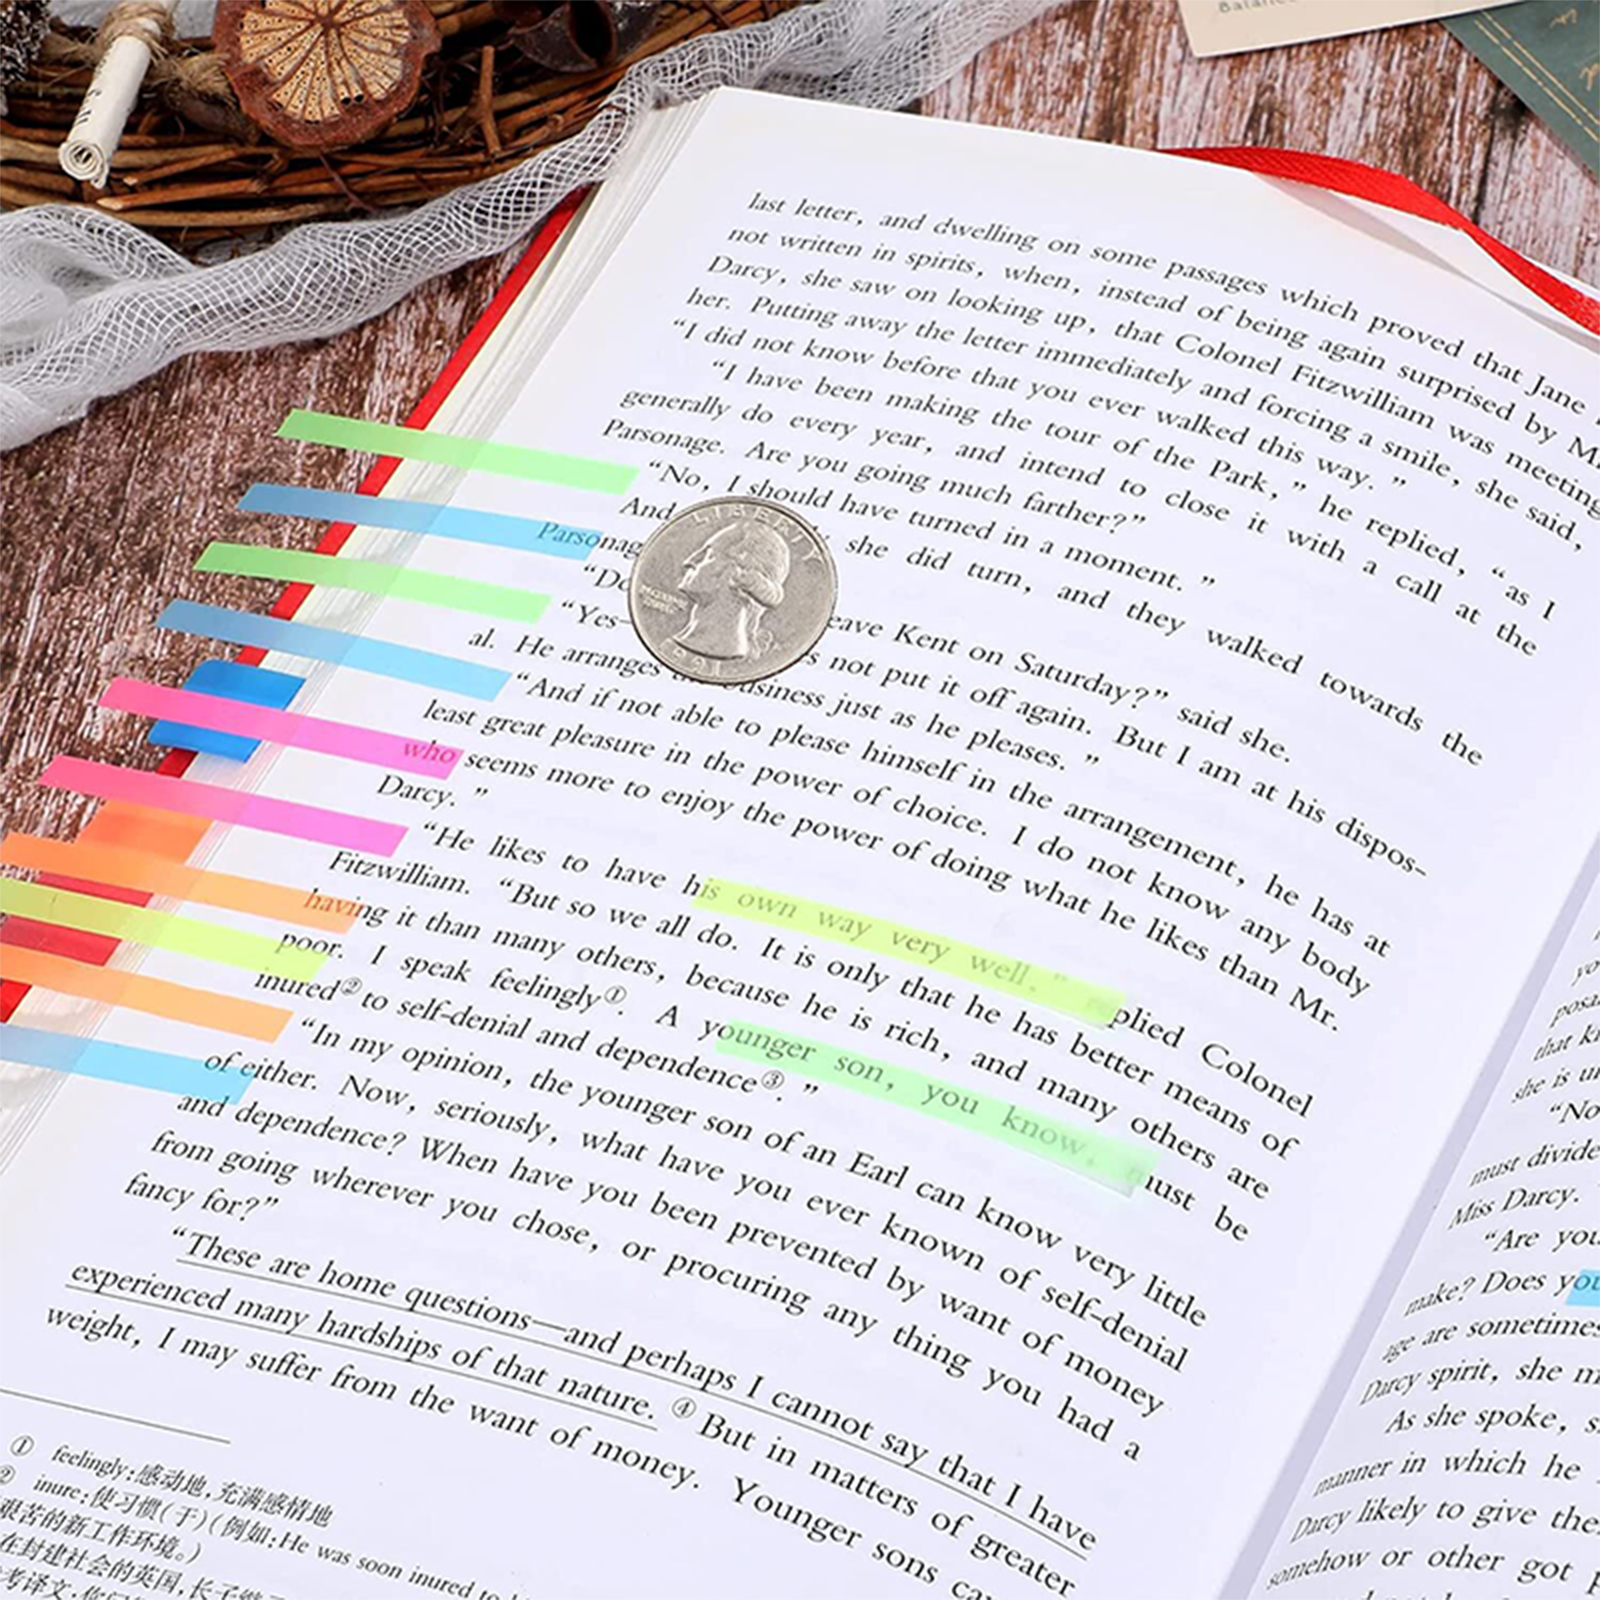 Balance
last letter, and dwelling on some passages which proved that Jane
not written in spirits, when, instead of being again surprised by
Darcy, she saw on looking up, that Colonel Fitzwilliam was meeting
her. Putting away the letter immediately and forcing a smile, she said,
“I did not know before that you ever walked this way. ”
“I have been making the tour of the Park, ” he replied, “as I
generally do every year, and intend to close it with a call at the
Parsonage. Are you going much farther?”
“No, I should have turned in a moment. ”
And she did turn, and they walked towards the
Parsonag
“Do eave Kent on Saturday?” said she.
“Yes— s not put it off again. But I am at his dispos-
al. He arranges the business just as he pleases. ”
“And if not able to please himself in the arrangement, he has at
least great pleasure in the power of choice. I do not know any body
who seems more to enjoy the power of doing what he likes than Mr.
Darcy. ”
“He likes to have his own way very well, ” replied Colonel
Fitzwilliam. “But so we all do. It is only that he has better means of
having it than many others, because he is rich, and many others are
poor. I speak feelingly①. A younger son, you know, must be
inured② to self-denial and dependence③. ”
“In my opinion, the younger son of an Earl can know very little
of either. Now, seriously, what have you ever known of self-denial
and dependence? When have you been prevented by want of money
from going wherever you chose, or procuring any thing you had a
fancy for?”
“These are home questions—and perhaps I cannot say that I have
experienced many hardships of that nature. ④ But in matters of greater
weight, I may suffer from the want of money. Younger sons
① feelingly:感动地,充满感情地
② inure:使习惯(于)(例如:He was soon inured
艰苦的新工作环境。)
在封建社会的英国,长子
考译文:
LIBERTY
1991
that
she is
“No
must divide
Miss Darcy.
“Are you
make? Does you
age are sometimes
Darcy spirit, she
As she spoke,
manner in which he
Darcy likely to give
somehow or other got